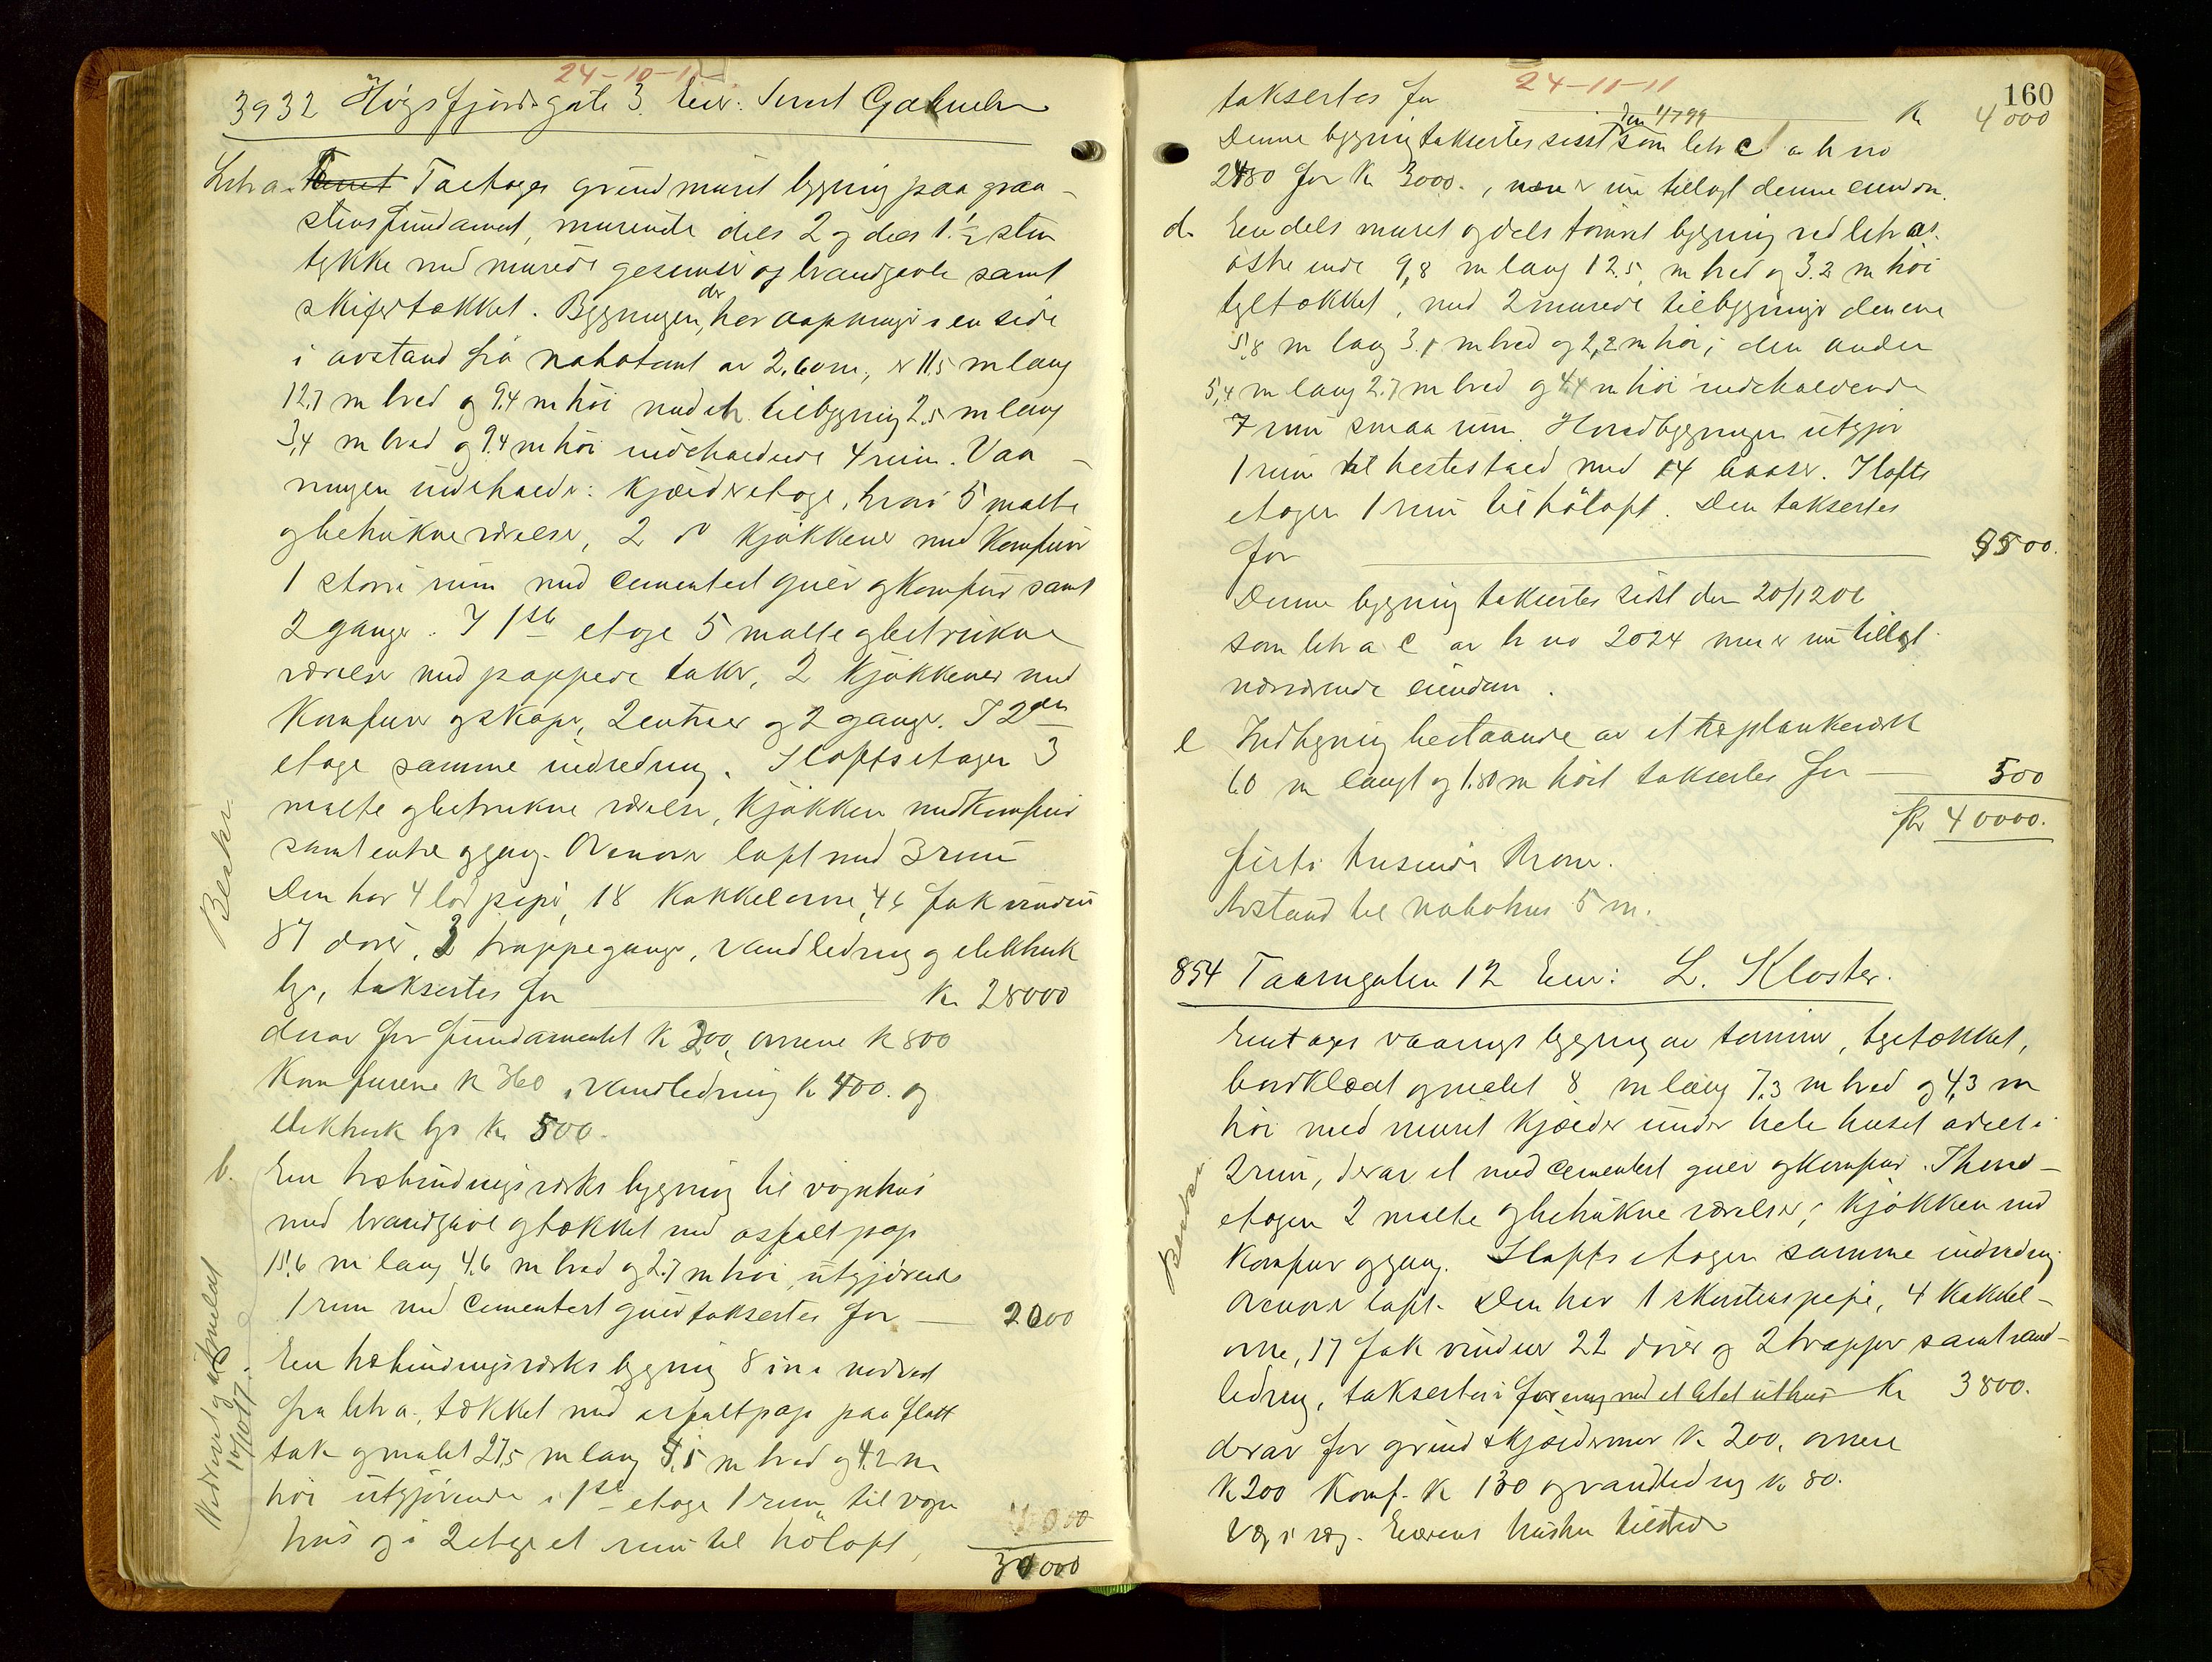 24-10-11
3932 Høgsfjordsgate 3. Eier:
Litr a. Toetages grundmuret bygning paa graa-
stensfundament, murende dels 2 og dels 1½ sten
tykke med murede gesimser og brandgavle samt
skifertækket. Bygningen, der har aapninger i en side
i avstand fra nabotomt av 2,60 m, er 11,5 m lang
12,7 m bred og 9,4 m høi med en tilbygning 2,5 m lang
3,4 m bred og 9,4 m høi indeholdende 4 rum. Vaa-
ningen indeholder: Kjælderetage, hvori 5 malte
og betrukne værelser, 2 do kjøkkener med komfur
1 større rum med cementert gulv og komfur samt
2 ganger. I 1ste etage 5 malte og betrukne
værelser med pappede taker, 2 kjøkkener med
komfurer og skaper, 2 entreer og 2 ganger. I 2den
etage samme indredning. I loftsetagen 3
malte og betrukne værelser, kjøkken med komfur
samt entre og gang. Ovenover loft med 3 rum
Den har 4 lod piper, 18 kakkelovne, 46 fak vinduer
87 dører, 3 trappeganger, vandledning og elektrisk
lys, taksertes for Kr. 28000
derav for fundamentet kr 200, ovnene kr 800
Komfurene kr 360, vandledning kr 400. og
elektrisk lys kr. 500.
b. En træbindingsverks bygning til vognhus
med brandgavl og tækket med asfaltpap
15,6 m lang 4,6 m bred og 2,7 m høi, utgjørende
1 rum med cementert gulv taksertes for 2000
En træbindingsverks bygning 8 m i nordvest
fra litr a., tækket med asfaltpap paa flatt
tak og malet 27,5 m lang 5,5 m bred og 4,2 m
høi utgjørende i 1ste etage 1 rum til vogn
hus og i 2 etage et rum til høloft,
4000
34000
Beskr.
10/10 17.
24-11-11
160
taksertes for Kr 4000
Denne bygning taksertes sidst som litr c av hr no
2480 for kr 3000., men er nu tillagt denne eiendom.
d. En dels muret og dels tømret bygning ved litr as
østre ende 9,8 m lang 12,5 m bred og 3,2 m høi
tegltækket, med 2 murede tilbygninger den ene
5,8 m lang 3,1 m bred og 2,2 m høi; den anden
5,4 m lang 2,7 m bred og 4,4 m høi indeholdende
7 rum smaa rum. Hovedbygningen utgjør
1 rum til hestestald med 14 baaser. I lofts
etagen 1 rum til høloft. Den taksertes
for 5500.
Denne bygning taksertes sidst den 20/12 06
som litr a c av hr no 2024 men er nu tillagt
nærværende eiendom.
e Indhegning bestaaende av et træplankeverk
60 m langt og 1,80 m høit taksertes for 500
Kr 40000.
firti tusinde Kroner.
Avstand til nabohus 5 m.
854 Taarngaten 12 Eier: L. Kloster.
Enetages vaanings bygning av tømmer, tegltækket,
bordklædt og malet 8 m lang 7,3 m bred og 4,3 m
høi med muret kjælder under hele huset avdelt i
2 rum, derav et med cementert gulv og komfur. I hoved-
etagen 2 malte og betrukne værelser, kjøkken med
komfur og gang. I lofts etagen samme indredning
Ovenover loft. Den har 1 skorstenspipe, 4 kakkel-
ovne, 17 fak vinduer 22 dører og 2 trapper samt vand-
ledning, taksertes i forening med et litet uthus Kr 3800.
derav for grund & kjældermur kr 200, ovnene
kr 200 Komf. kr 130 og vandledning kr 80.
Væg i væg. Eierens hustru tilstede
Beskr.